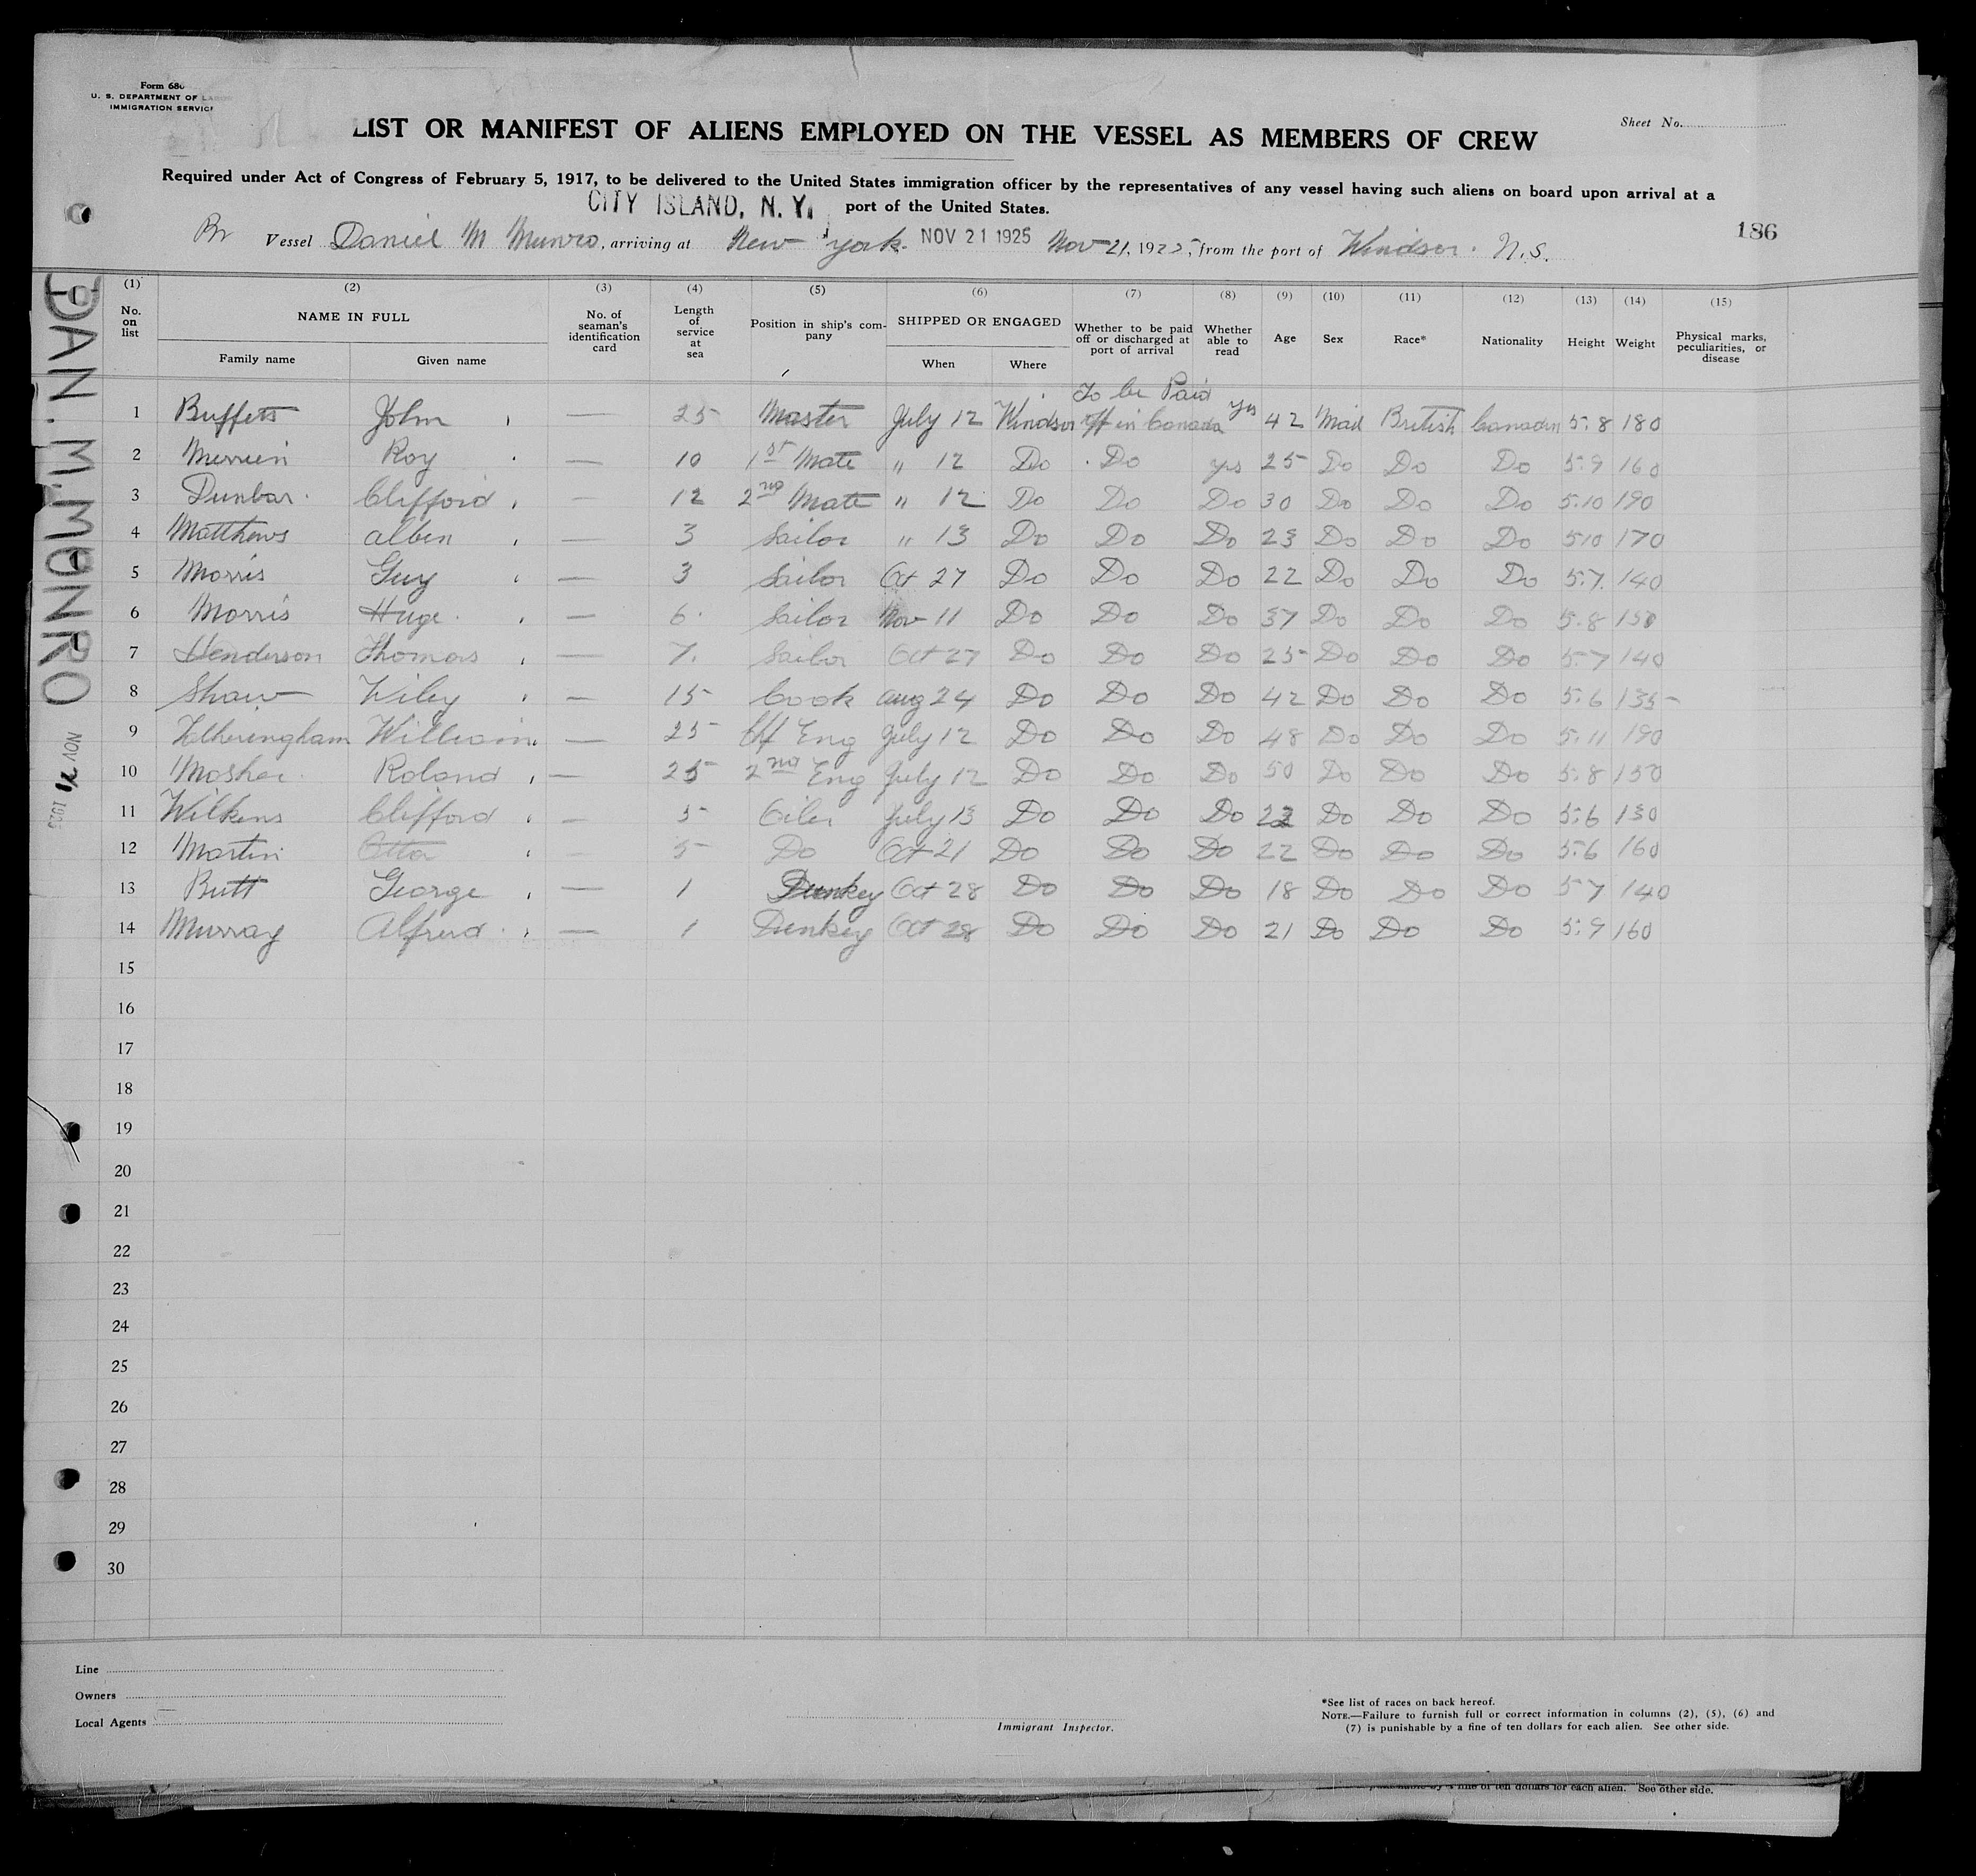 Form 680
U. S. DEPARTMENT OF LABOR
IMMIGRATION SERVICE
LIST OR MANIFEST OF ALIENS EMPLOYED ON THE VESSEL AS MEMBERS OF CREW
Sheet No.
Required under Act of Congress of February 5, 1917, to be delivered to the United States immigration officer by the representatives of any vessel having such aliens on board upon arrival at a
CITY ISLAND, N. Y. port of the United States.
186
Br Vessel Daniel M Munro, arriving at New York. NOV 21 1925 Nov 21, 1925, from the port of Windsor. N.S.
DAN. M. MUNRO
NOV 21 1925
(1) (2) (3) (4) (5) (6) (7) (8) (9) (10) (11) (12) (13) (14) (15)
No. on list NAME IN FULL No. of seaman's identification card Length of service at sea Position in ship's company SHIPPED OR ENGAGED Whether to be paid off or discharged at port of arrival Whether able to read Age Sex Race* Nationality Height Weight Physical marks, peculiarities, or disease
Family name Given name When Where
To be Paid
1 Buffett John — 25 Master July 12 Windsor off in Canada yes 42 Mail British Canadin 5.8 180
2 Roy — 10 1st Mate " 12 Do Do yes 25 Do Do Do 5.9 160
3 Dunbar Clifford — 12 2nd Mate " 12 Do Do Do 30 Do Do Do 5.10 190
4 Matthews Alben — 3 Sailor " 13 Do Do Do 23 Do Do Do 5.10 170
5 Morris Guy — 3 Sailor Oct 27 Do Do Do 22 Do Do Do 5.7. 140
6 Morris Huge — 6. Sailor Nov 11 Do Do Do 37 Do Do Do 5.8 150
7 Henderson Thomas — 7. Sailor Oct 27 Do Do Do 25 Do Do Do 5.7 140
8 Shaw Wiley — 15 Cook Aug 24 Do Do Do 42 Do Do Do 5.6 135
9 William — 25 Chf Eng July 12 Do Do Do 48 Do Do Do 5.11 190
10 Mosher Roland — 25 2nd Eng July 12 Do Do Do 50 Do Do Do 5.8 150
11 Wilkens Clifford — 5 Oiler July 13 Do Do Do Do Do Do 5.6 130
12 Martin Otto — 5 Do Oct 21 Do Do Do 22 Do Do Do 5.6 160
13 Butt George — 1 Dunkey Oct 28 Do Do Do 18 Do Do Do 5.7 140
14 Murray Alfred — 1 Dunkey Oct 28 Do Do Do 21 Do Do Do 5.9 160
15
16
17
18
19
20
21
22
23
24
25
26
27
28
29
30
Line
Owners
Local Agents
Immigrant Inspector.
*See list of races on back hereof.
NOTE.—Failure to furnish full or correct information in columns (2), (5), (6) and
(7) is punishable by a fine of ten dollars for each alien. See other side.
punishable by a fine of ten dollars for each alien. See other side.